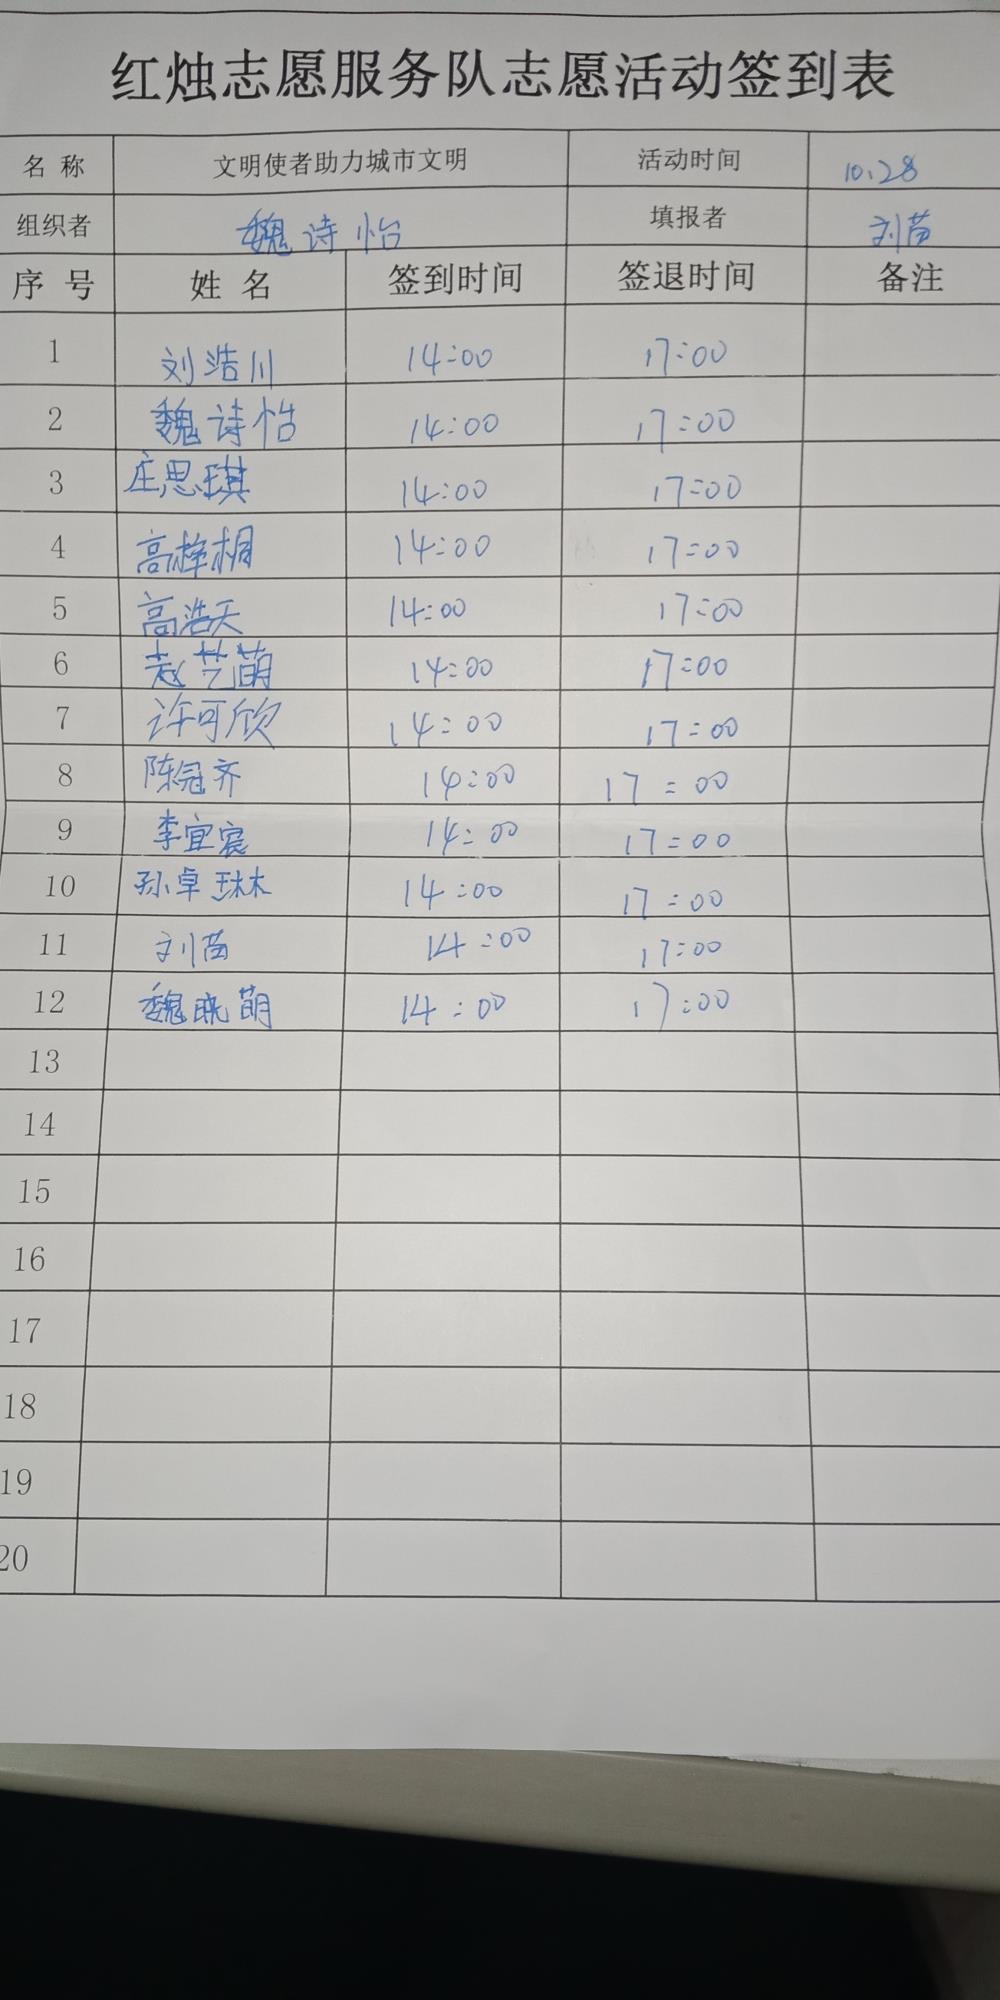 红烛志愿服务队志愿活动签到表
名称 文明使者助力城市文明 活动时间 10.28
组织者 魏诗怡 填报者 刘苗
序号 姓名 签到时间 签退时间 备注
1 刘浩川 14:00 17:00
2 魏诗怡 14:00 17:00
3 庄思琪 14:00 17:00
4 高梓桐 14:00 17:00
5 高浩天 14:00 17:00
6 赵艺萌 14:00 17:00
7 许可欣 14:00 17:00
8 陈冠齐 14:00 17:00
9 李宜宸 14:00 17:00
10 孙卓琳 14:00 17:00
11 刘苗 14:00 17:00
12 魏晓萌 14:00 17:00
13
14
15
16
17
18
19
20